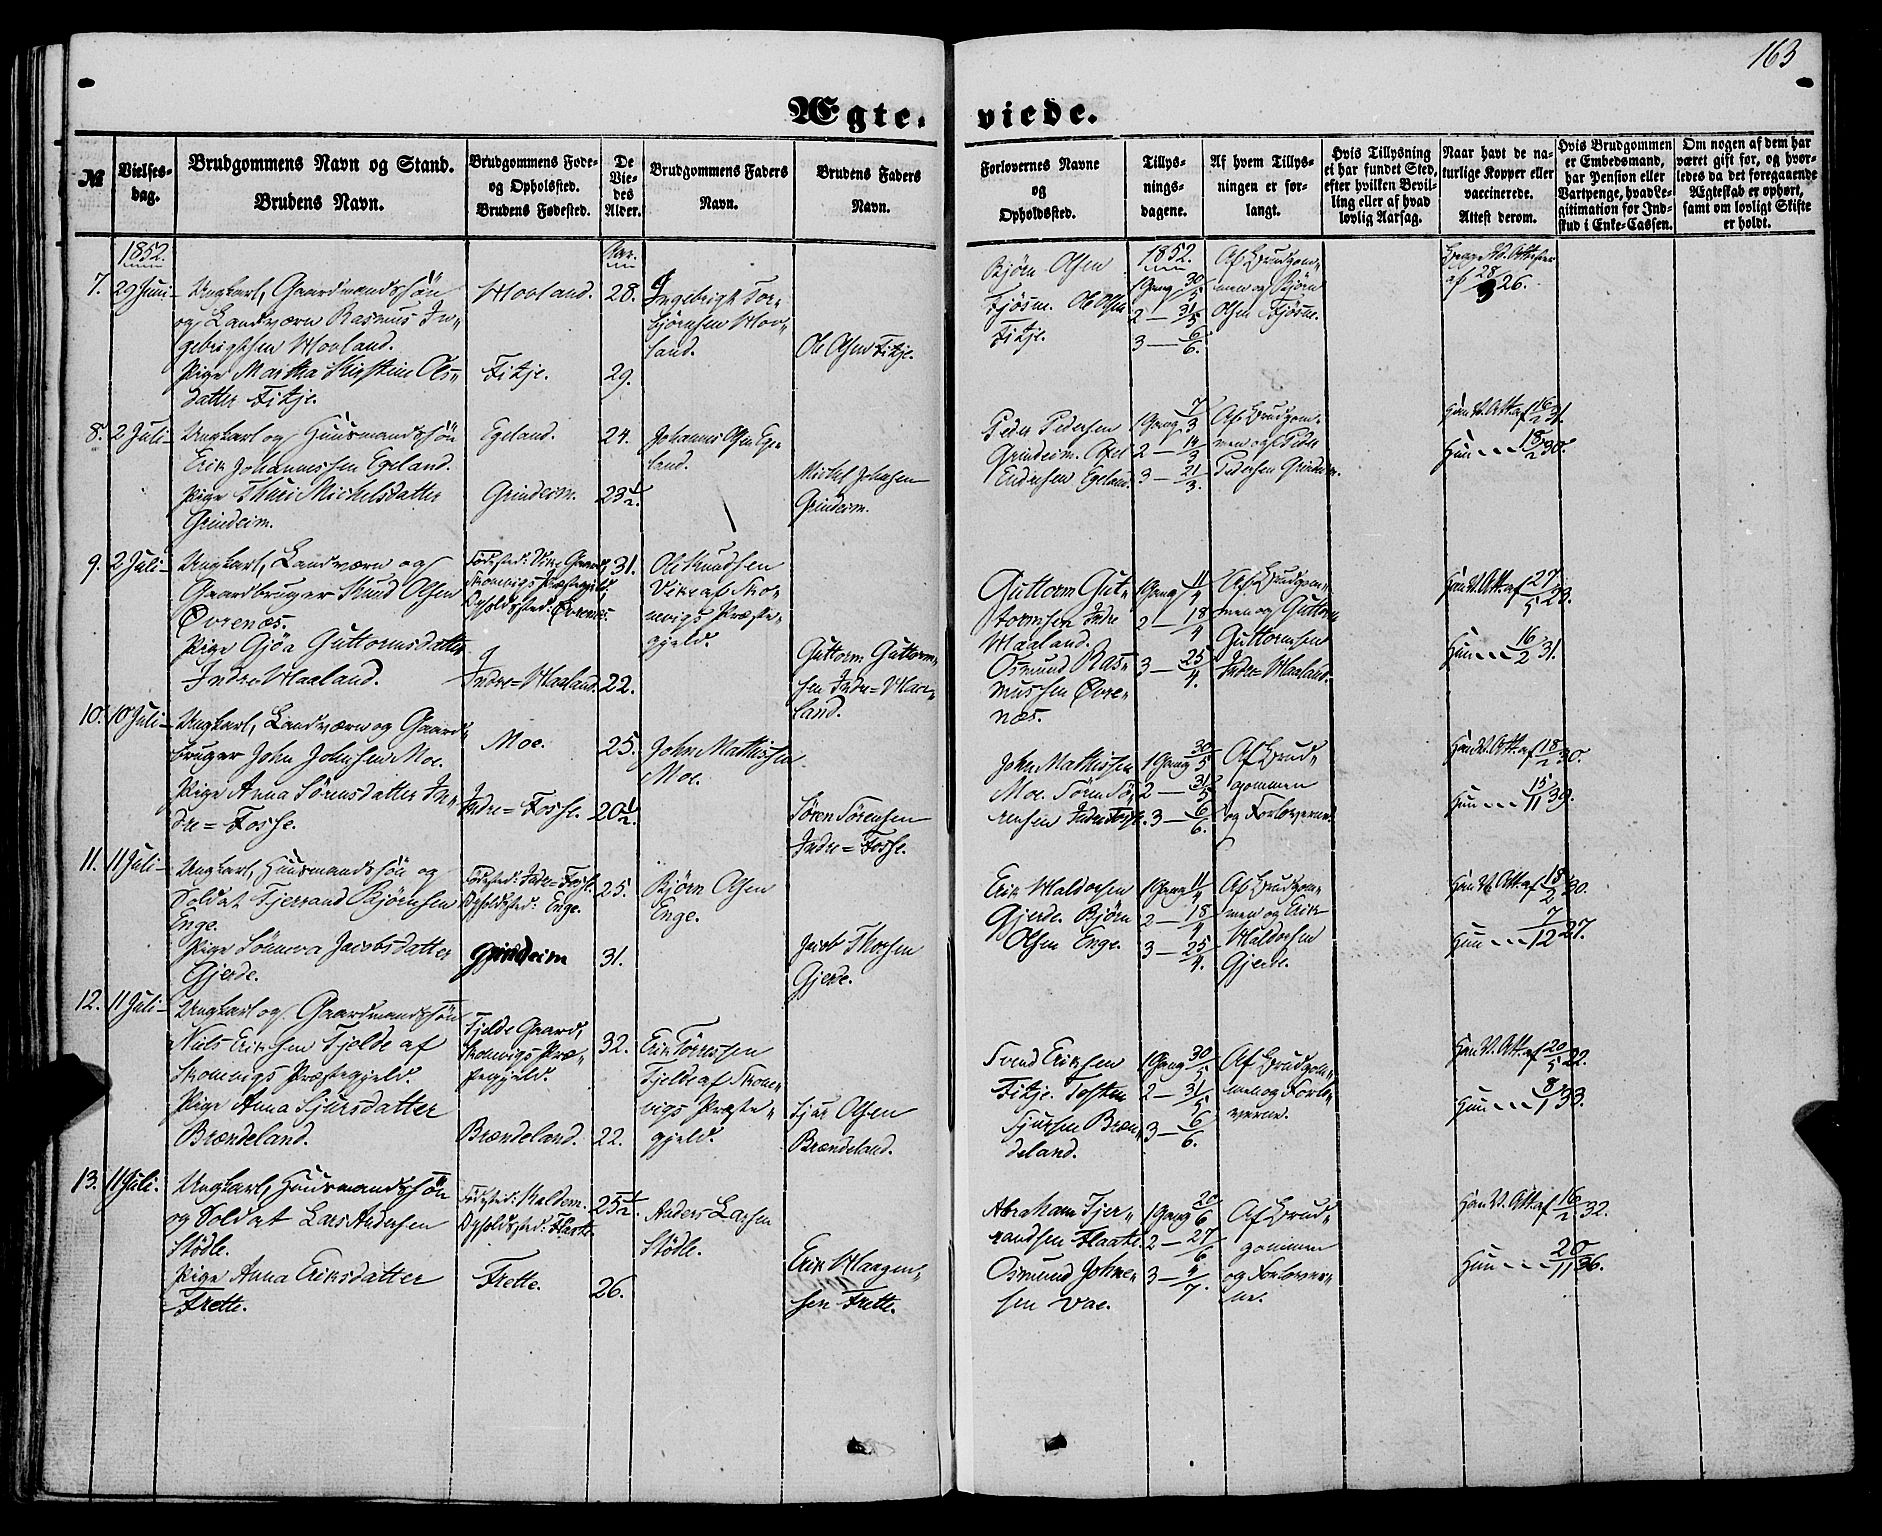 163
Ægte- viede.
№
Vielses-
dag.
Brudgommens Navn og Stand.
Brudens Navn.
Brudgommens Føde-
og Opholdssted.
Brudens Fødested.
De
Vie-
des
Alder.
Brudgommens Faders
Navn.
Brudens Faders
Navn.
Forlovernes Navne
og
Opholdssted.
Tillys-
nings-
dagene.
Af hvem Tillys-
ningen er for-
langt.
Hvis Tillysning
ei har fundet Sted,
efter hvilken Bevil-
ling eller af hvad
lovlig Aarsag.
Naar havt de na-
turlige Kopper eller
vaccinerede.
Attest derom.
Hvis Brudgommen
er Embedsmand,
har Pension eller
Vartpenge, hvad Le-
gitimation for Ind-
stud i Enke-Cassen.
Om nogen af dem har
været gift før, og hvor-
ledes da det foregaaende
Ægteskab er ophørt,
samt om lovligt Skifte
er holdt.
1852.
Aar.
7. 29 Juni
Ungkarl, Gaardmandssøn
og Landværn Rasmus In-
gebrigtsen Hovland.
Pige Martha Kirstine Ols-
datter Fitje.
Hovland.
Fitje.
28.
29.
Ingebrigt Tor-
bjørnsen Hov-
land.
Ole Olsen Fitje.
Bjørn Olsen
Fjøsne. Ole Olsen
Fitje.
1852.
1 Gang 30/5
2 — 31/5
3 — 6/6.
Af Brudgom-
men og Bjørn
Olsen Fjøsne.
Begge V. Attester
af 28/3 26.
8. 2 Juli
Ungkarl og Huusmandssøn
Erik Johannessen Egeland.
Pige Thuri Michelsdatter
Grindeim.
Egeland.
Grindeim.
24.
23 1/2.
Johannes Olsen Ege-
land.
Michel Johnsen
Grindeim.
Peder Pedersen
Grindeim.
Endresen Egeland.
1 Gang 7/3
2 — 14/3
3 — 21/3.
Af Brudgom-
men og Peder
Pedersen Grindeim.
Han V. Att. af 16/2 31.
Hun — 18/2 30.
9. 2 Juli
Ungkarl, Landværn og
Gaardbruger Knud Olsen
Øvrenæs.
Pige Gjøa Guttormsdatter
Indre Haaland.
Fødested: Vike Gaard,
Skonevigs Præstegjeld.
Opholdssted: Øvrenæs.
Indre=Haaland.
31.
22.
Ole Knudsen
Vike af Sko-
nevigs Præste-
gjeld.
Guttorm Guttorm-
sen Indre=Haa-
land.
Guttorm Gut-
tormsen Indre
Haaland.
Osmund Ras-
mussen Øvre-
næs.
1 Gang 11/4
2 — 18/4
3 — 25/4.
Af Brudgom-
men og Guttorm
Guttormsen
Indre=Haaland.
Han V. Att. af 27/5 23.
Hun — 16/2 31.
10. 10 Juli
Ungkarl, Landværn og Gaard-
bruger John Johnsen Moe.
Pige Anna Sørensdatter In-
dre=Fosse.
Moe.
Indre=Fosse.
25.
20 1/2.
John Mathissen
Moe.
Søren Sørensen
Indre=Fosse.
John Mathissen
Moe. Søren Sø-
rensen Indre Fosse.
1 Gang 30/5
2 — 31/5
3 — 6/6.
Af Brud-
gommen
og Forloverne.
Han V. Att. af 18/2 30.
Hun — 15/11 39.
11. 11 Juli
Ungkarl, Huusmandssøn og
Soldat Tjerrand Bjørnsen
Enge.
Pige Sønneva Jacobsdatter
Gjerde.
Fødested: Indre=Fosse.
Opholdssted: Enge.
Grindeim
25.
31.
Bjørn Olsen
Enge.
Jacob Thorsen
Gjerde.
Erik Haldorsen
Gjerde. Bjørn
Olsen Enge.
1 Gang 11/4
2 — 18/4
3 — 25/4.
Af Brudgom-
men og Erik
Haldorsen
Gjerde.
Han V. Att. af 18/2 30.
Hun — 7/12 27.
12. 11 Juli
Ungkarl og Gaardmandssøn
Niels Eriksen Fjelde af
Skonevigs Præstegjeld.
Pige Anna Sjursdatter
Brændeland.
Fjelde Gaard,
Skonevigs Præ-
stegjeld.
Brændeland.
32.
22.
Erik Tørresen
Fjelde af Skone-
vigs Præste-
gjeld.
Sjur Olsen
Brændeland.
Svend Eriksen
Fitje. Tosten
Sjursen Bræn-
deland.
1 Gang 30/5
2 — 31/5
3 — 6/6.
Af Brudgom-
men og Forlo-
verne.
Han V. Att. af 20/5 22.
Hun — 8/1 33.
13. 11 Juli.
Ungkarl, Huusmandssøn
og Soldat Lars Andersen
Stødle.
Pige Anna Eriksdatter
Frette.
Fødested: Kaldem.
Opholdssted: Flaate.
Frette.
25 1/2.
26.
Anders Larsen
Stødle.
Erik Haagen-
sen Frette.
Abraham Tjer-
randsen Flaate.
Osmund Johne-
sen Vae.
1 Gang 20/6
2 — 27/6
3 — 4/7.
Af Brud-
gommen
og Forlover-
ne.
Han V. Att. af 16/2 32.
Hun — 20/11 36.